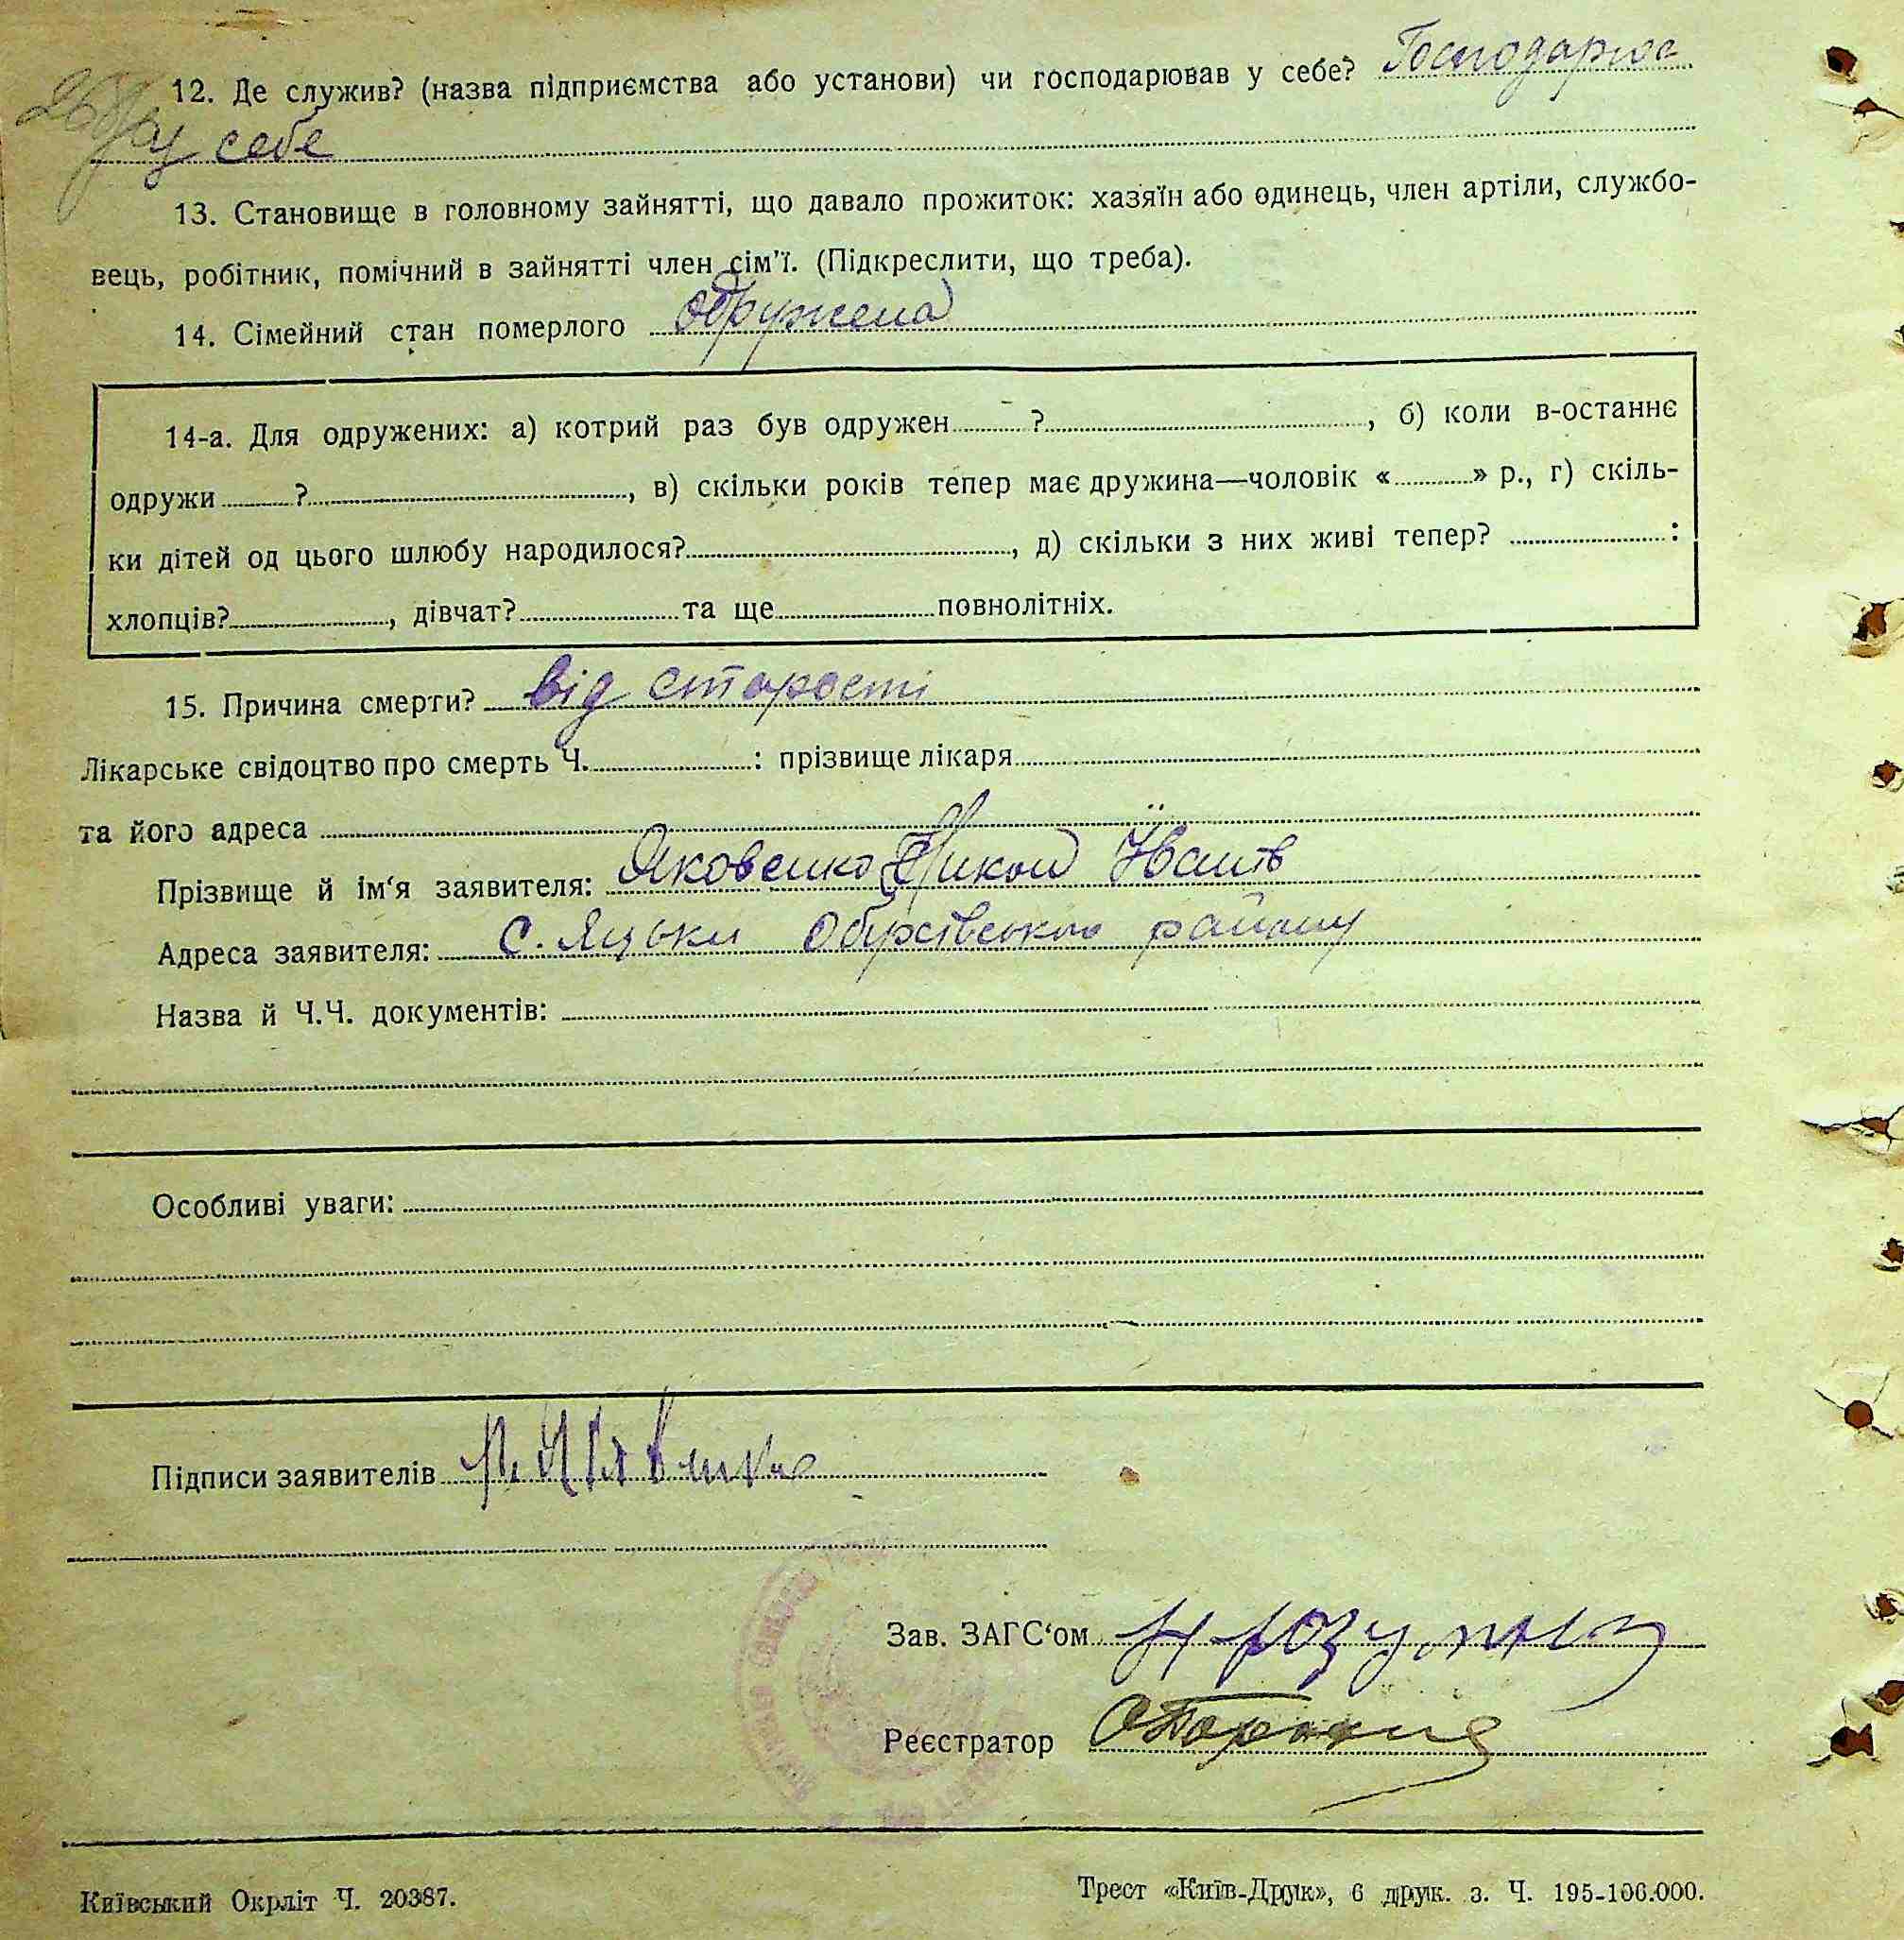 12. Де служив? (назва підприємства або установи) чи господарював у себе? Господарює
у себе
13. Становище в головному зайнятті, що давало прожиток: хазяїн або одинець, член артіли, службо-
вець, робітник, помічний в зайнятті член сім'ї. (Підкреслити, що треба).
14. Сімейний стан померлого одружена
14-а. Для одружених: а) котрий раз був одружен ?, б) коли в-останнє
одружи ?, в) скільки років тепер має дружина—чоловік « » р., г) скіль-
ки дітей од цього шлюбу народилося?, д) скільки з них живі тепер? :
хлопців?, дівчат? та ще повнолітніх.
15. Причина смерти? від старости
Лікарське свідоцтво про смерть Ч. : прізвище лікаря
та його адреса
Прізвище й ім‘я заявителя: Яковенко Никон Іванів
Адреса заявителя: с. Яцьки району
Назва й Ч.Ч. документів:
Особливі уваги:
Підписи заявителів
Зав. ЗАГС‘ом
Реєстратор
Київський Окрліт Ч. 20387.
Трест «Київ-Друк», 6 друк. з. Ч. 195-106.000.